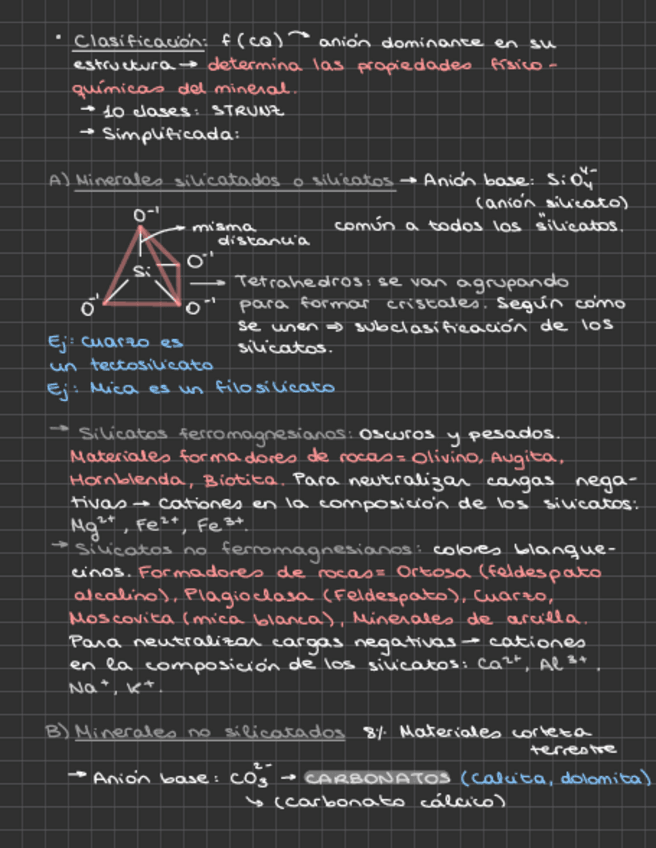 · Clasificación: f(cq) → anión dominante en su
estructura → determina las propiedades físico-
químicas del mineral.
→ 10 clases: STRUNZ
→ Simplificada:
A) Minerales silicatados o silicatos → Anión base: SiO₄⁴⁻
(anión silicato)
común a todos los "silicatos.
O⁻¹
misma
distancia
Si
O⁻¹
O⁻¹
O⁻¹
→ Tetrahedros: se van agrupando
para formar cristales. Según cómo
se unen ⇒ subclasificación de los
silicatos.
Ej: cuarzo es
un tectosilicato
Ej: Mica es un filosilicato
→ Silicatos ferromagnesianos: oscuros y pesados.
Materiales formadores de rocas = Olivino, Augita,
Hornblenda, Biotita. Para neutralizar cargas nega-
tivas → cationes en la composición de los silicatos:
Mg²⁺, Fe²⁺, Fe³⁺.
→ Silicatos no ferromagnesianos: colores blanque-
cinos. Formadores de rocas = Ortosa (feldespato
alcalino), Plagioclasa (Feldespato), Cuarzo,
Moscovita (mica blanca), Minerales de arcilla.
Para neutralizar cargas negativas → cationes
en la composición de los silicatos: Ca²⁺, Al³⁺,
Na⁺, K⁺.
B) Minerales no silicatados 8% Materiales corteza
terrestre
→ Anión base: CO₃²⁻ → CARBONATOS (calcita, dolomita)
↳ (carbonato cálcico)